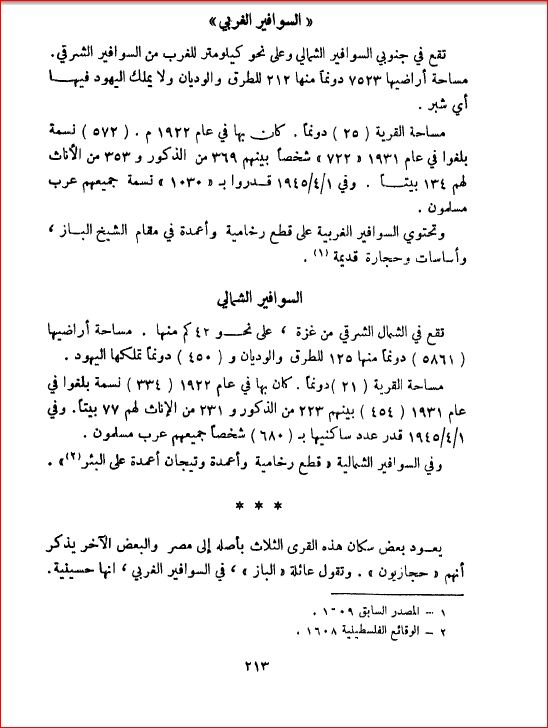 « السوافير الغربي »
تقع في جنوبي السوافير الشمالي وعلى نحو كيلومتر للغرب من السوافير الشرقي.
مساحة أراضيها ٧٥٢٣ دونماً منها ٢١٢ للطرق والوديان ولا يملك اليهود فيها
أي شبر .
مساحة القرية ( ٢٥ ) دونماً . كان بها في عام ١٩٢٢ م . ( ٥٧٢ ) نسمة
بلغوا في عام ١٩٣١ « ٧٢٢ » شخصاً بينهم ٣٦٩ من الذكور و ٣٥٣ من الأناث
لهم ١٣٤ بيتاً . وفي ١٩٤٥/٤/١ قدروا بـ « ١٠٣٠ » نسمة جميعهم عرب
مسلمون .
وتحتوي السوافير الغربية على قطع رخامية وأعمدة في مقام الشيخ الباز ،
وأساسات وحجارة قديمة (١) .
السوافير الشمالي
تقع في الشمال الشرقي من غزة ، على نحو ٤٢ كم منها . مساحة أراضيها
( ٥٨٦١ ) دونماً منها ١٢٥ للطرق والوديان و ( ٤٥٠ ) دونماً تملكها اليهود .
مساحة القرية ( ٢١ ) دونماً . كان بها في عام ١٩٢٢ ( ٣٣٤ ) نسمة بلغوا في
عام ١٩٣١ ( ٤٥٤ ) بينهم ٢٢٣ من الذكور و ٢٣١ من الإناث لهم ٧٧ بيتاً. وفي
١٩٤٥/٤/١ قدر عدد ساكنيها بـ ( ٦٨٠ ) شخصاً جميعهم عرب مسلمون .
وفي السوافير الشمالية « قطع رخامية وأعمدة وتيجان أعمدة على البئر(٢) » .
* * *
يعود بعض سكان هذه القرى الثلاث بأصله إلى مصر والبعض الآخر يذكر
أنهم « حجازيون » . وتقول عائلة « الباز » ، في السوافير الغربي ، انها حسينية.
١ – المصدر السابق ١٦٠٩ .
٢ – الوقائع الفلسطينية ١٦٠٨ .
٢١٣